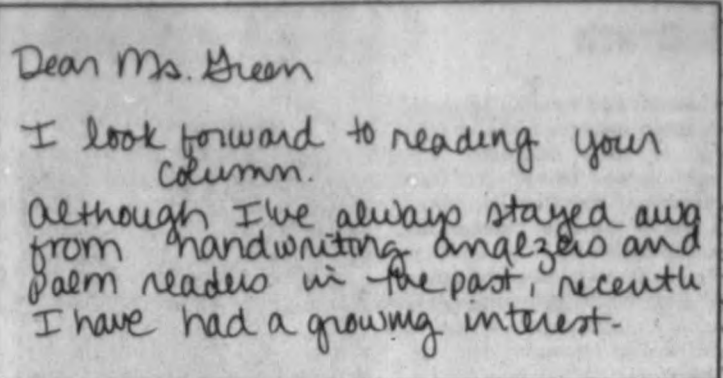 Dear Ms. Green
I look forward to reading your
column.
Although I've always stayed awa
from handwriting analezers and
palm readers in the past, recentl
I have had a growing interest.